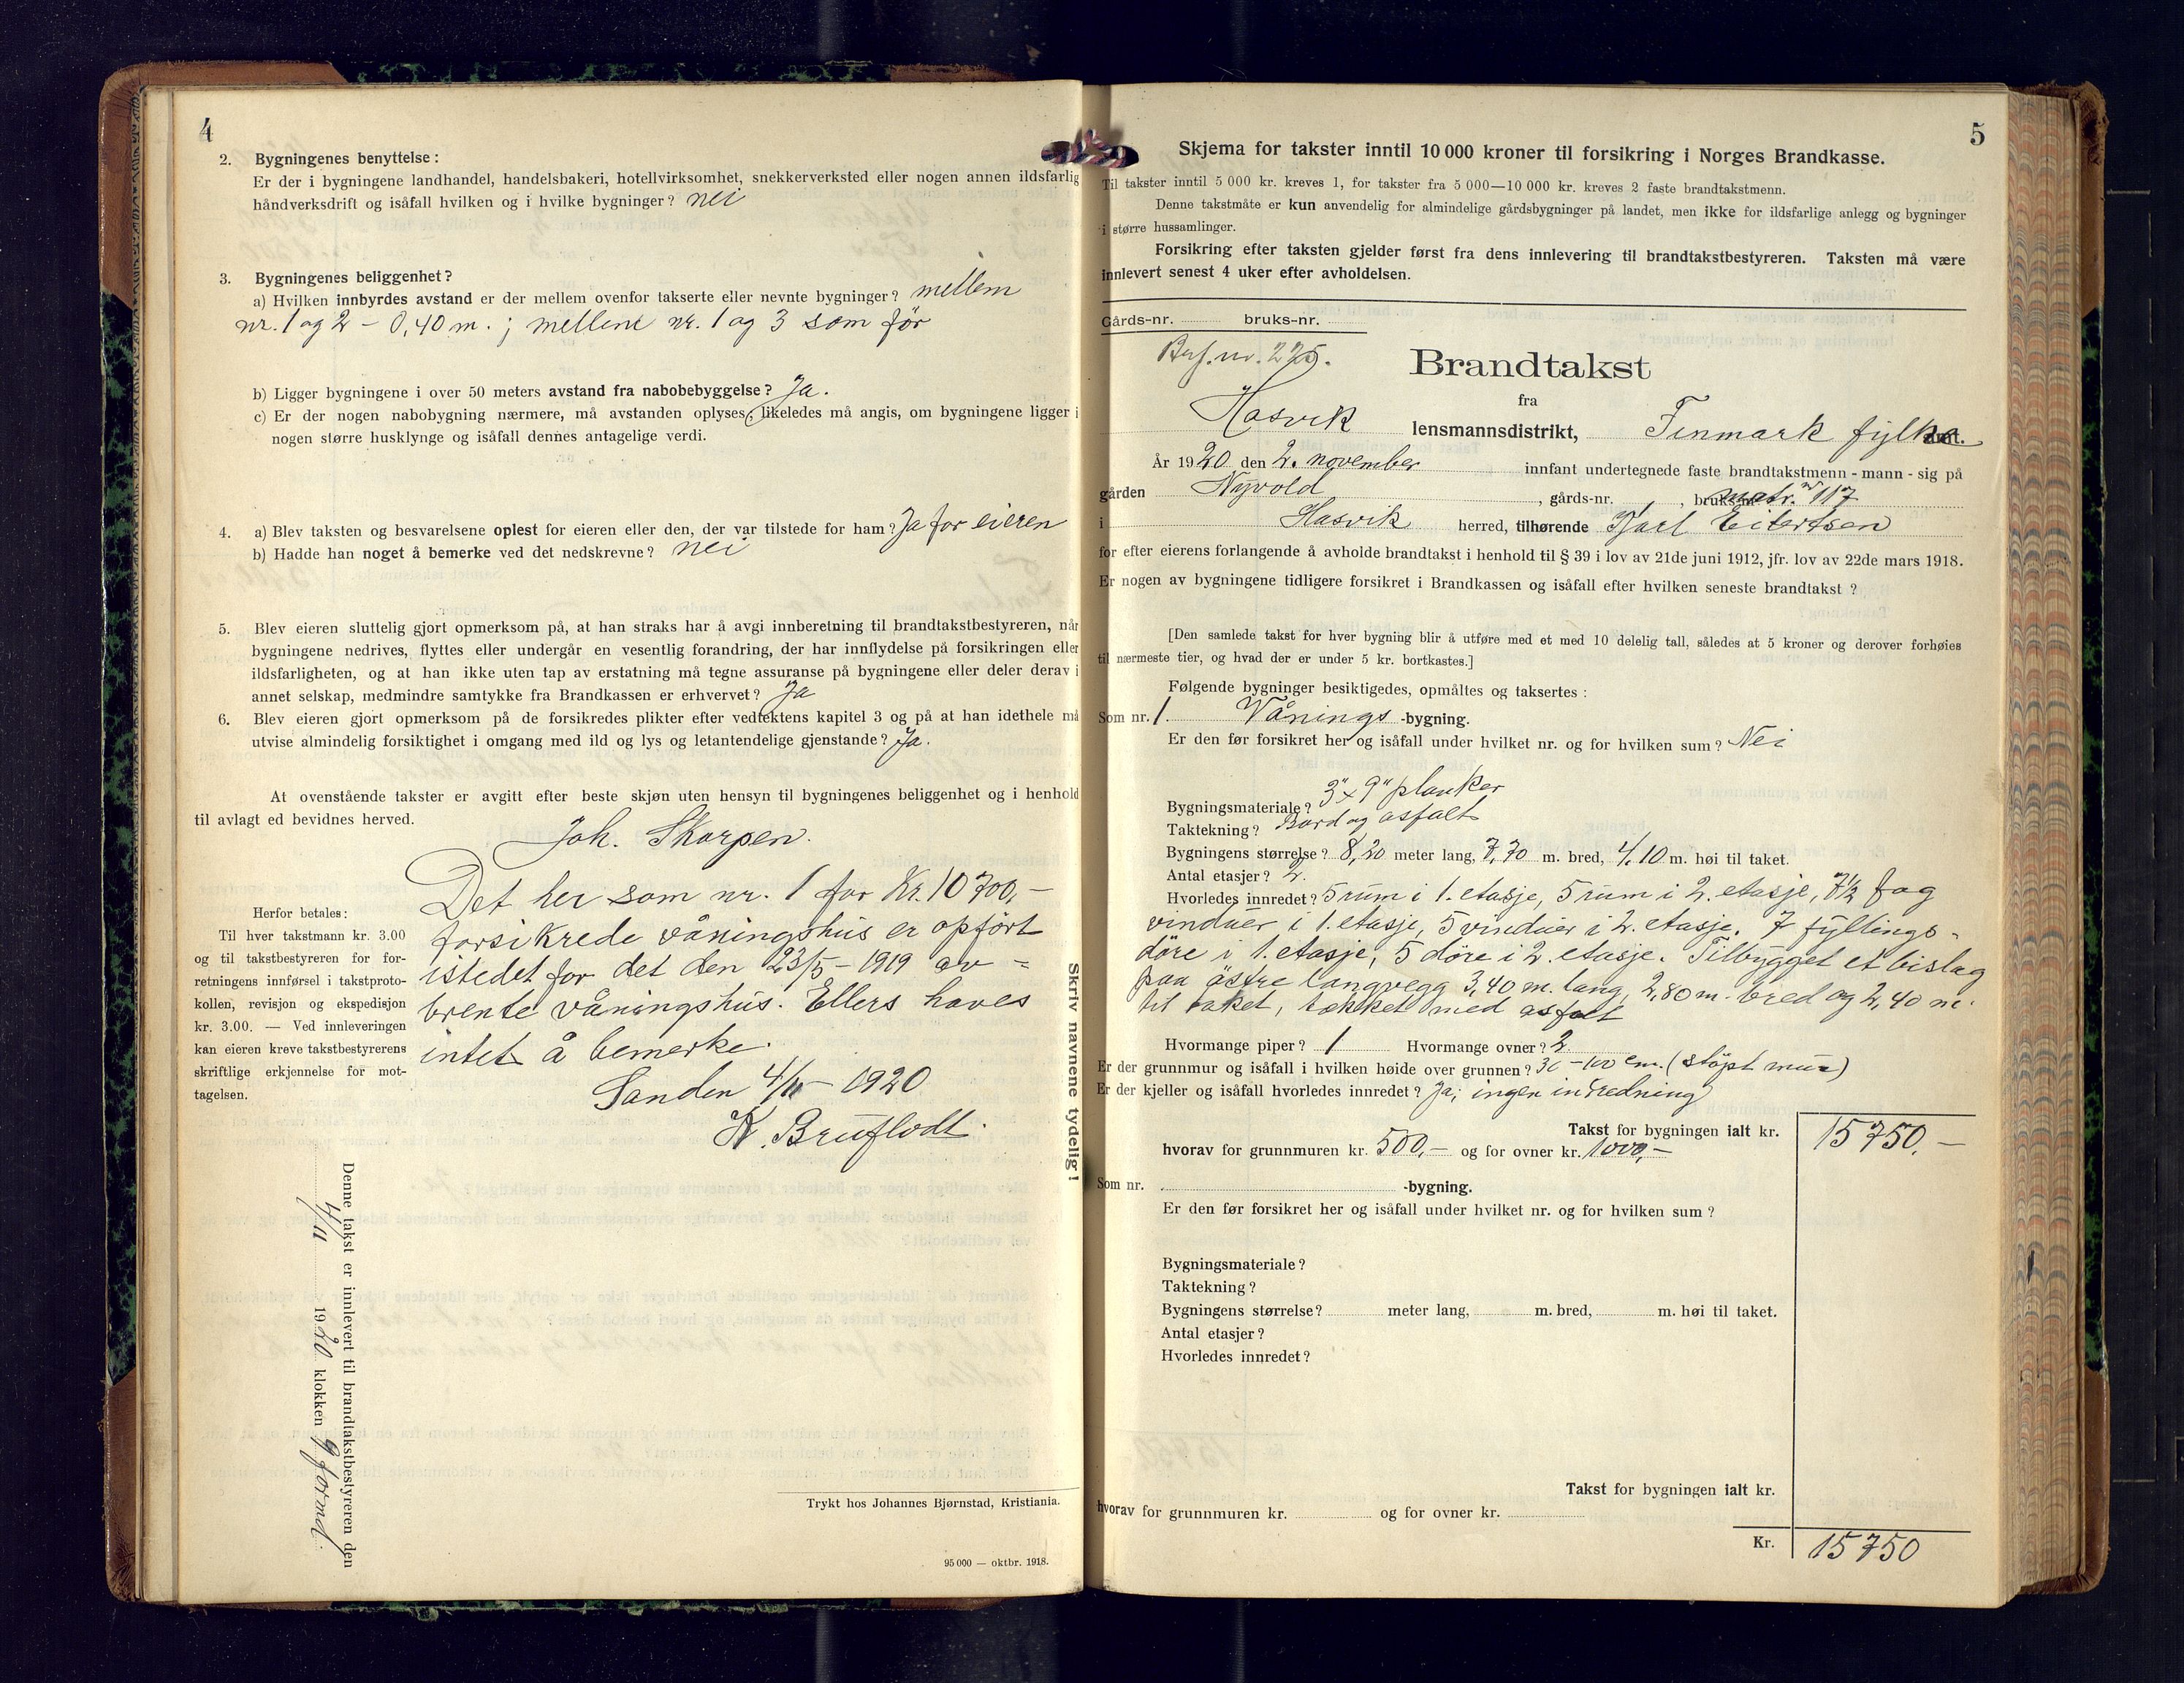 4
2. Bygningenes benyttelse:
Er der i bygningene landhandel, handelsbakeri, hotellvirksomhet, snekkerverksted eller nogen annen ildsfarlig
håndverksdrift og isåfall hvilken og i hvilke bygninger? nei
3. Bygningenes beliggenhet?
a) Hvilken innbyrdes avstand er der mellem ovenfor takserte eller nevnte bygninger? mellem
nr. 1 og 2 - 0,40 m. ; mellem nr. 1 og 3 som för
b) Ligger bygningene i over 50 meters avstand fra nabobebyggelse? Ja.
c) Er der nogen nabobygning nærmere, må avstanden oplyses; likeledes må angis, om bygningene ligger i
nogen større husklynge og isåfall dennes antagelige verdi.
4. a) Blev taksten og besvarelsene oplest for eieren eller den, der var tilstede for ham? Ja for eieren
b) Hadde han noget å bemerke ved det nedskrevne? nei
5. Blev eieren sluttelig gjort opmerksom på, at han straks har å avgi innberetning til brandtakstbestyreren, når
bygningene nedrives, flyttes eller undergår en vesentlig forandring, der har innflydelse på forsikringen eller
ildsfarligheten, og at han ikke uten tap av erstatning må tegne assuranse på bygningene eller deler derav i
annet selskap, medmindre samtykke fra Brandkassen er erhvervet? Ja
6. Blev eieren gjort opmerksom på de forsikredes plikter efter vedtektens kapitel 3 og på at han idethele må
utvise almindelig forsiktighet i omgang med ild og lys og letantendelige gjenstande? Ja.
At ovenstående takster er avgitt efter beste skjøn uten hensyn til bygningenes beliggenhet og i henhold
til avlagt ed bevidnes herved.
Joh. Skarpen.
Det her som nr. 1 for Kr. 10700,-
forsikrede våningshus er opfört
istedet for det den 23/5 - 1919 av =
brente våningshus. Ellers haves
intet å bemerke.
Sanden 4/11 - 1920
K. Bruflodt.
Herfor betales:
Til hver takstmann kr. 3.00
og til takstbestyreren for for-
retningens innførsel i takstproto-
kollen, revisjon og ekspedisjon
kr. 3.00. — Ved innleveringen
kan eieren kreve takstbestyrerens
skriftlige erkjennelse for mot-
tagelsen.
Skriv navnene tydelig!
Denne takst er innlevert til brandtakstbestyreren den
4/11 1920 klokken 9 formd.
Trykt hos Johannes Bjørnstad, Kristiania.
95 000 — oktbr. 1918.
5
Skjema for takster inntil 10 000 kroner til forsikring i Norges Brandkasse.
Til takster inntil 5 000 kr. kreves 1, for takster fra 5 000—10 000 kr. kreves 2 faste brandtakstmenn.
Denne takstmåte er kun anvendelig for almindelige gårdsbygninger på landet, men ikke for ildsfarlige anlegg og bygninger
i større hussamlinger.
Forsikring efter taksten gjelder først fra dens innlevering til brandtakstbestyreren. Taksten må være
innlevert senest 4 uker efter avholdelsen.
Gårds-nr. bruks-nr.
nr. 225.
Brandtakst
fra
Hasvik lensmannsdistrikt, Finmark fylke amt.
År 1920 den 2. november innfant undertegnede faste brandtakstmenn - mann - sig på
gården Nyvold , gårds-nr. , bruks-nr. matr. nr 117
i Hasvik herred, tilhørende Karl Eilertsen
for efter eierens forlangende å avholde brandtakst i henhold til § 39 i lov av 21de juni 1912, jfr. lov av 22de mars 1918.
Er nogen av bygningene tidligere forsikret i Brandkassen og isåfall efter hvilken seneste brandtakst?
[Den samlede takst for hver bygning blir å utføre med et med 10 delelig tall, således at 5 kroner og derover forhøies
til nærmeste tier, og hvad der er under 5 kr. bortkastes.]
Følgende bygninger besiktigedes, opmåltes og taksertes:
Som nr. 1. Vånings -bygning.
Er den før forsikret her og isåfall under hvilket nr. og for hvilken sum? Nei
Bygningsmateriale? 3" x 9" planker
Taktekning? Bord og asfalt
Bygningens størrelse? 8,20 meter lang, 7,70 m. bred, 4,10 m. høi til taket.
Antal etasjer? 2.
Hvorledes innredet? 5 rum i 1. etasje, 5 rum i 2. etasje, 7½ fag
vinduer i 1. etasje, 5 vinduer i 2. etasje. 7 fyllings-
döre i 1. etasje, 5 döre i 2. etasje. Tilbygget et bislag
paa östre langvegg 3,40 m. lang, 2,80 m. bred og 2,40 m.
til taket, tækket med asfalt
Hvormange piper? 1 Hvormange ovner? 2
Er der grunnmur og isåfall i hvilken høide over grunnen? 30 - 100 cm. (stöpt mur)
Er der kjeller og isåfall hvorledes innredet? Ja; ingen indredning
Takst for bygningen ialt kr. 15750.-
hvorav for grunnmuren kr. 500,- og for ovner kr. 1000,-
Som nr. -bygning.
Er den før forsikret her og isåfall under hvilket nr. og for hvilken sum?
Bygningsmateriale?
Taktekning?
Bygningens størrelse? meter lang, m. bred, m. høi til taket.
Antal etasjer?
Hvorledes innredet?
Takst for bygningen ialt kr.
hvorav for grunnmuren kr. og for ovner kr.
Kr. 15750